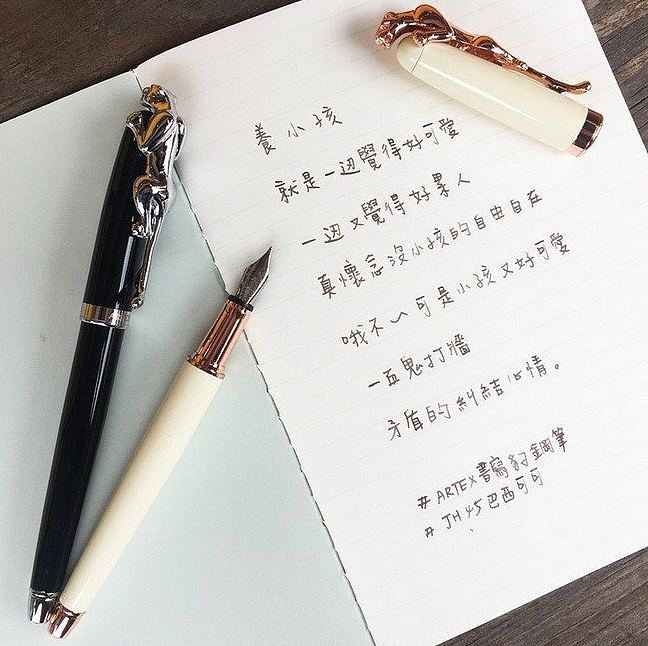 養小孩
就是一边覺得好可愛
一边又覺得好累人
真懷念沒小孩的自由自在
哦不～可是小孩又好可愛
一直鬼打牆
矛盾的糾結心情。
#ARTEX書寫豹鋼筆
#JH45巴西可可